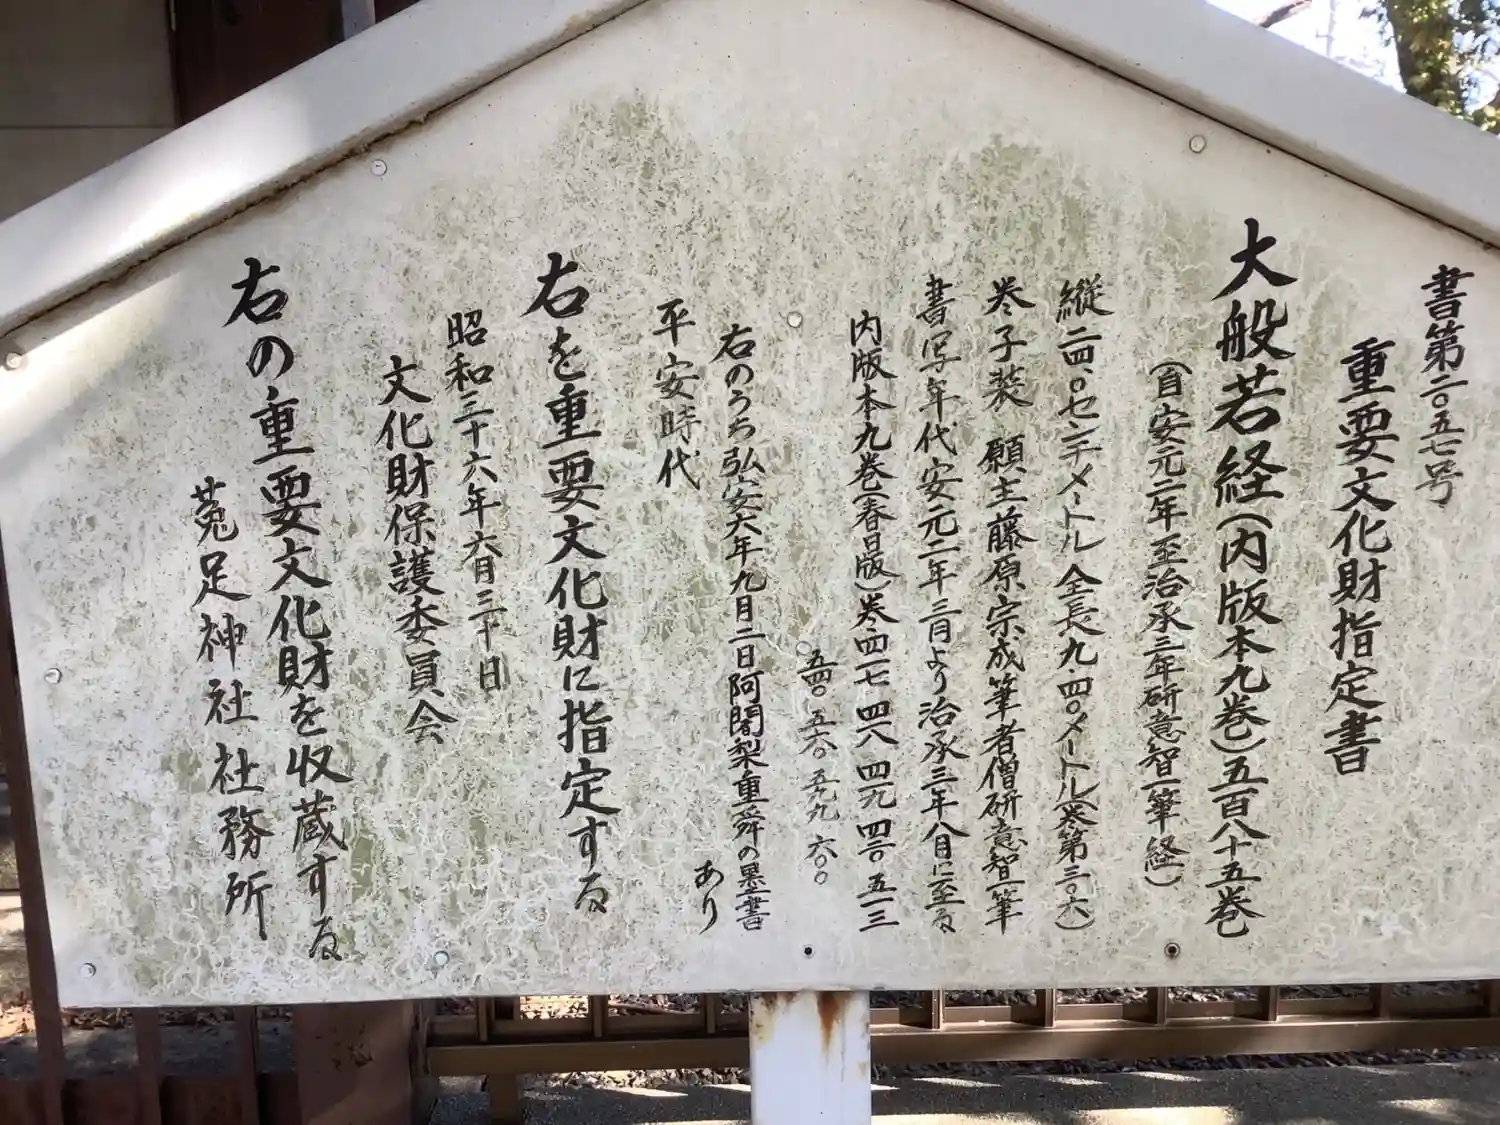 書第二〇五七号
重要文化財指定書
大般若経(内版本九巻)五百八十五巻
(自安元二年至治承三年研意智一筆経)
縦二四、〇センチメートル全長九、四〇メートル(巻第三〇六)
巻子装 願主藤原宗成筆者僧研意智一筆
書写年代安元二年三月より治承三年八月に至る
内版本九巻(春日版)巻四一七 四一八 四一九 四二〇 五一三
五四〇 五六〇 五九九 六〇〇
右のうち弘安六年九月二日阿闍梨重舜の墨書
あり
平安時代
右を重要文化財に指定する
昭和三十六年六月三十日
文化財保護委員会
右の重要文化財を収蔵する
菟足神社社務所